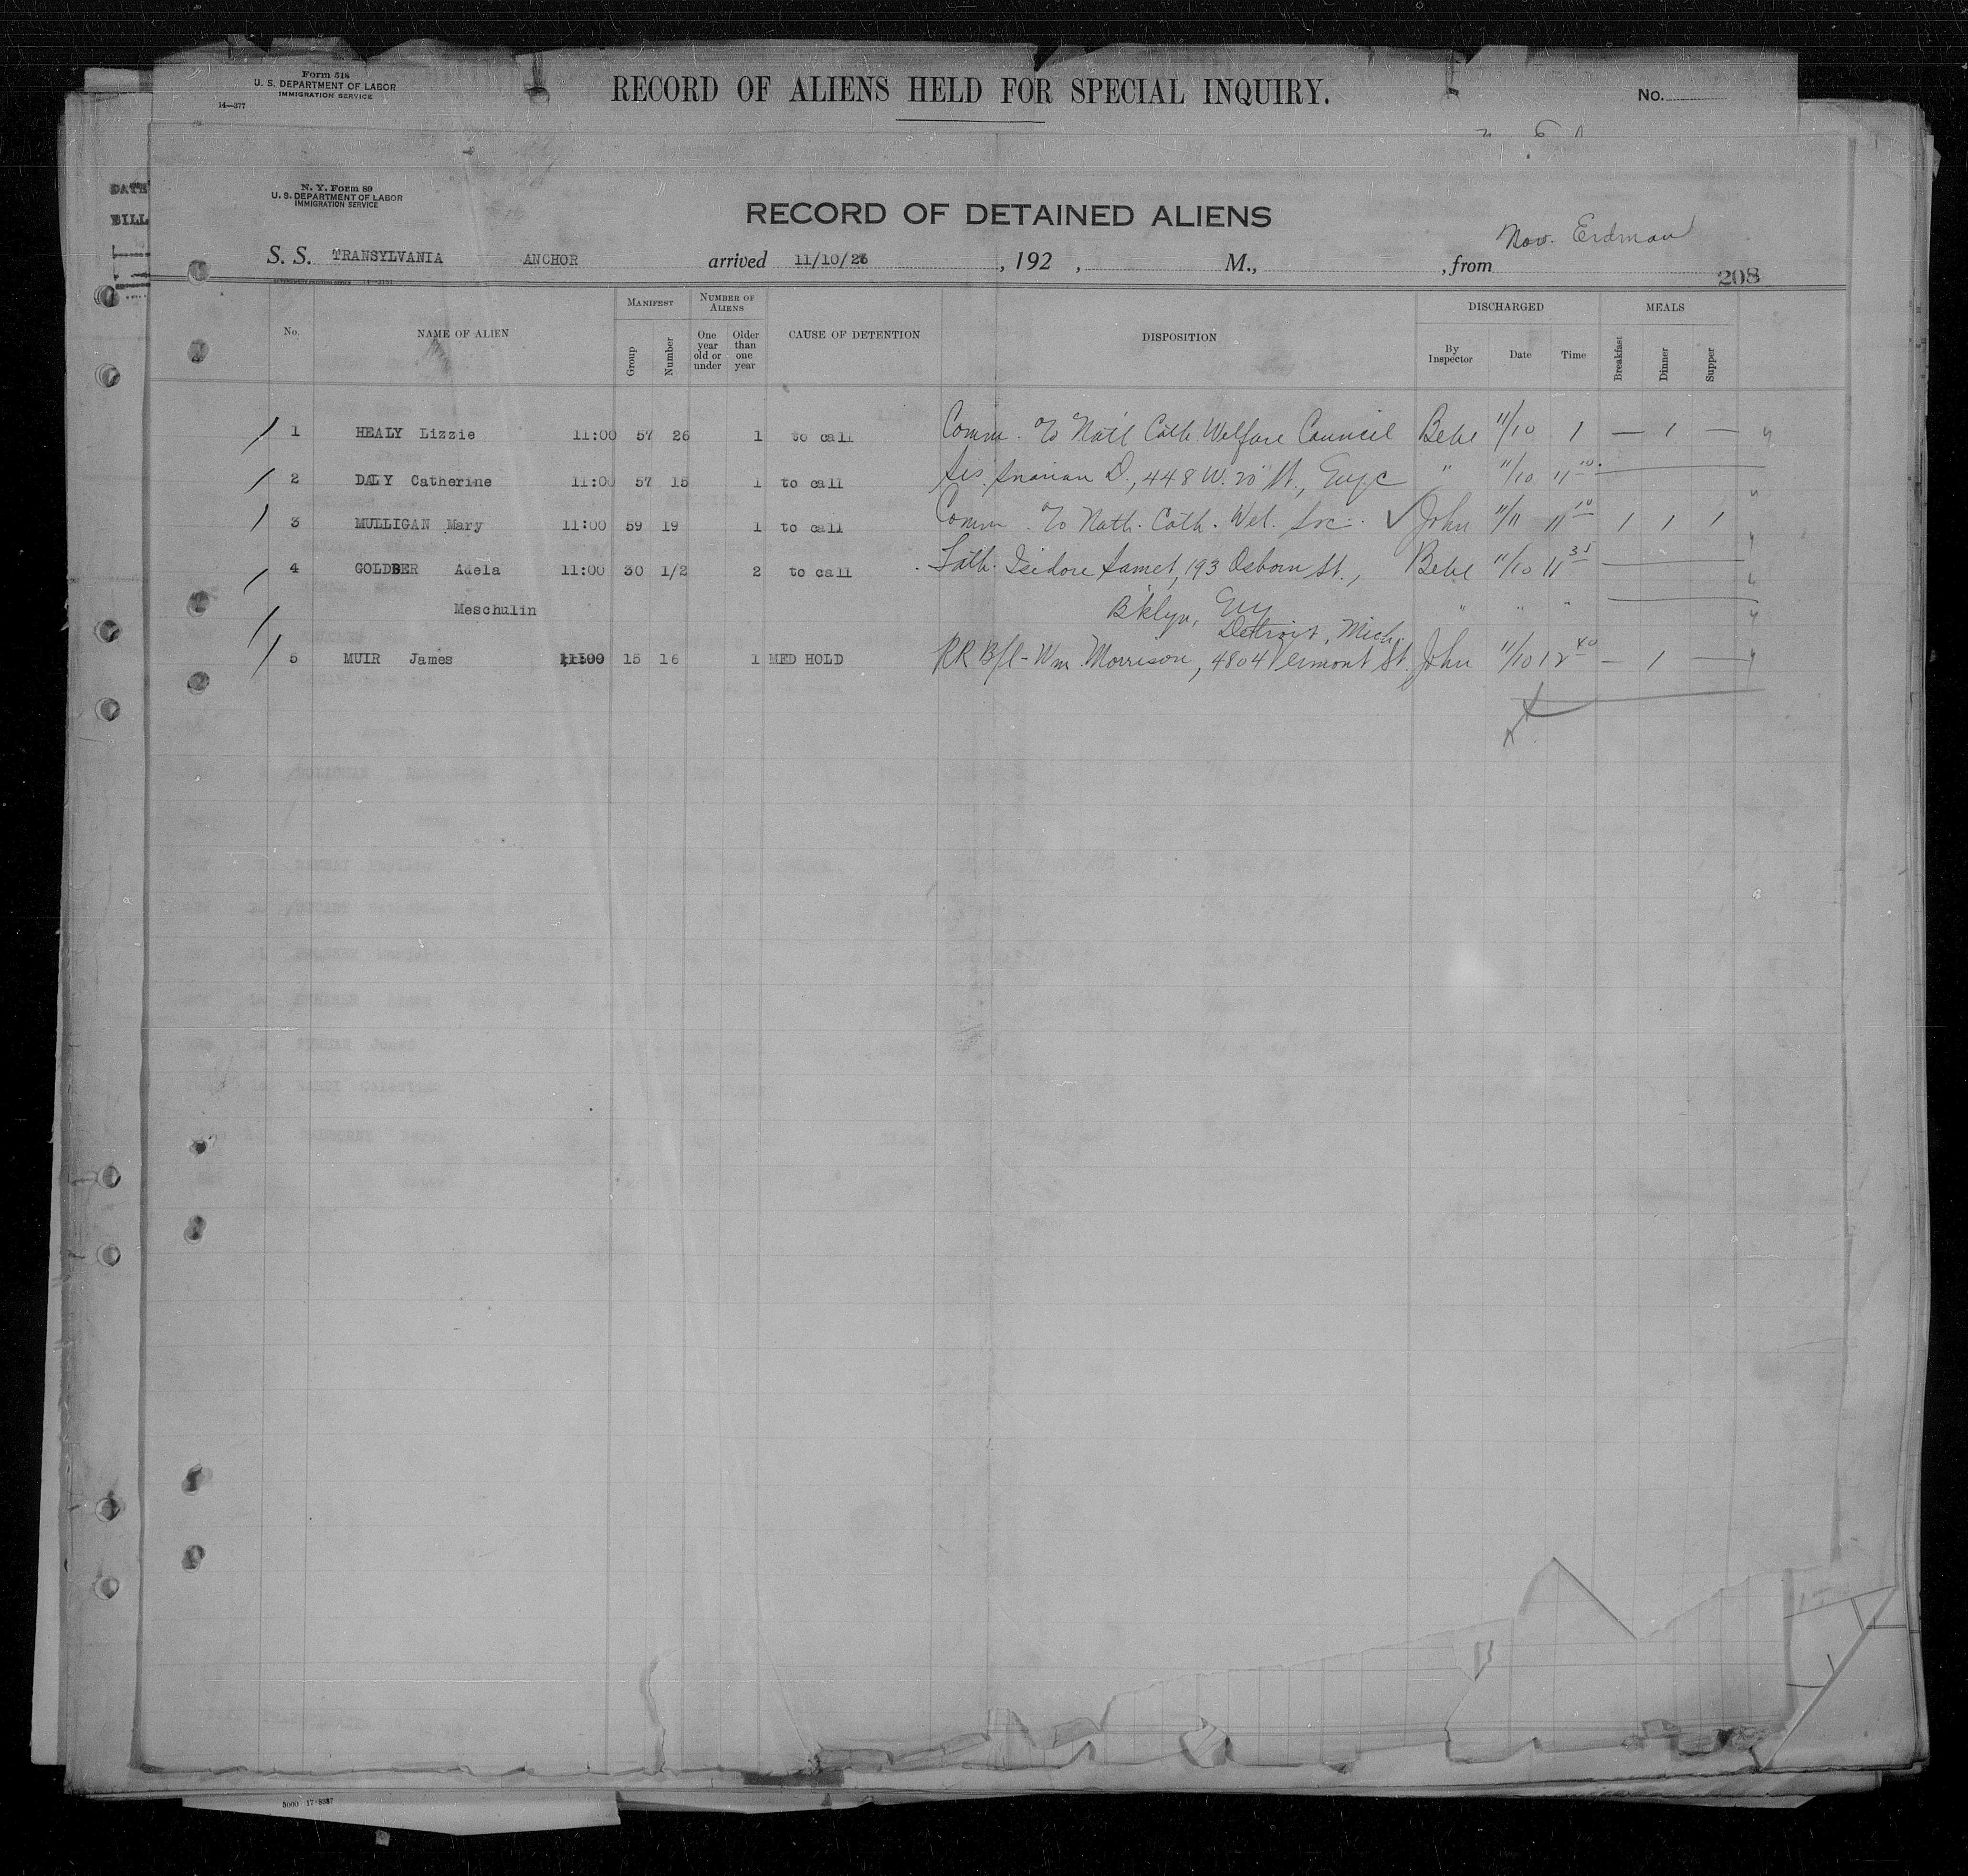 Form 518
U. S. DEPARTMENT OF LABOR
IMMIGRATION SERVICE
14—377
RECORD OF ALIENS HELD FOR SPECIAL INQUIRY.
No.
DATE
BILL
N. Y. Form 89
U. S. DEPARTMENT OF LABOR
IMMIGRATION SERVICE
RECORD OF DETAINED ALIENS
Nov. Erdman
S. S. TRANSYLVANIA ANCHOR arrived 11/10/26 , 192 , M., , from
208
No. NAME OF ALIEN MANIFEST Group Number NUMBER OF ALIENS One year old or under Older than one year CAUSE OF DETENTION DISPOSITION DISCHARGED By Inspector Date Time MEALS Breakfast Dinner Supper
1 HEALY Lizzie 11:00 57 26 1 to call Comm. To Natl Cath. Welfare Council Bebe 11/10 1 — 1 —
2 DALY Catherine 11:00 57 15 1 to call Sis. D., 448 W. 20" St., " 11/10 11 10
3 MULLIGAN Mary 11:00 59 19 1 to call Comm. To Natl. Cath. Wel. ✓ John 11/11 11 10 1 1 1
4 GOLDBER Adela 11:00 30 1/2 2 to call Fath. Isidore Samet, 193 Osborn St., Bebe 11/10 11 35
Meschulin B'klyn, NY " " "
Detroit, Mich.
5 MUIR James 11:00 15 16 1 MED HOLD RR B/l - Wm. Morrison, 4804 Vermont St. John 11/10 12 40 — 1 —
5000 17 8387